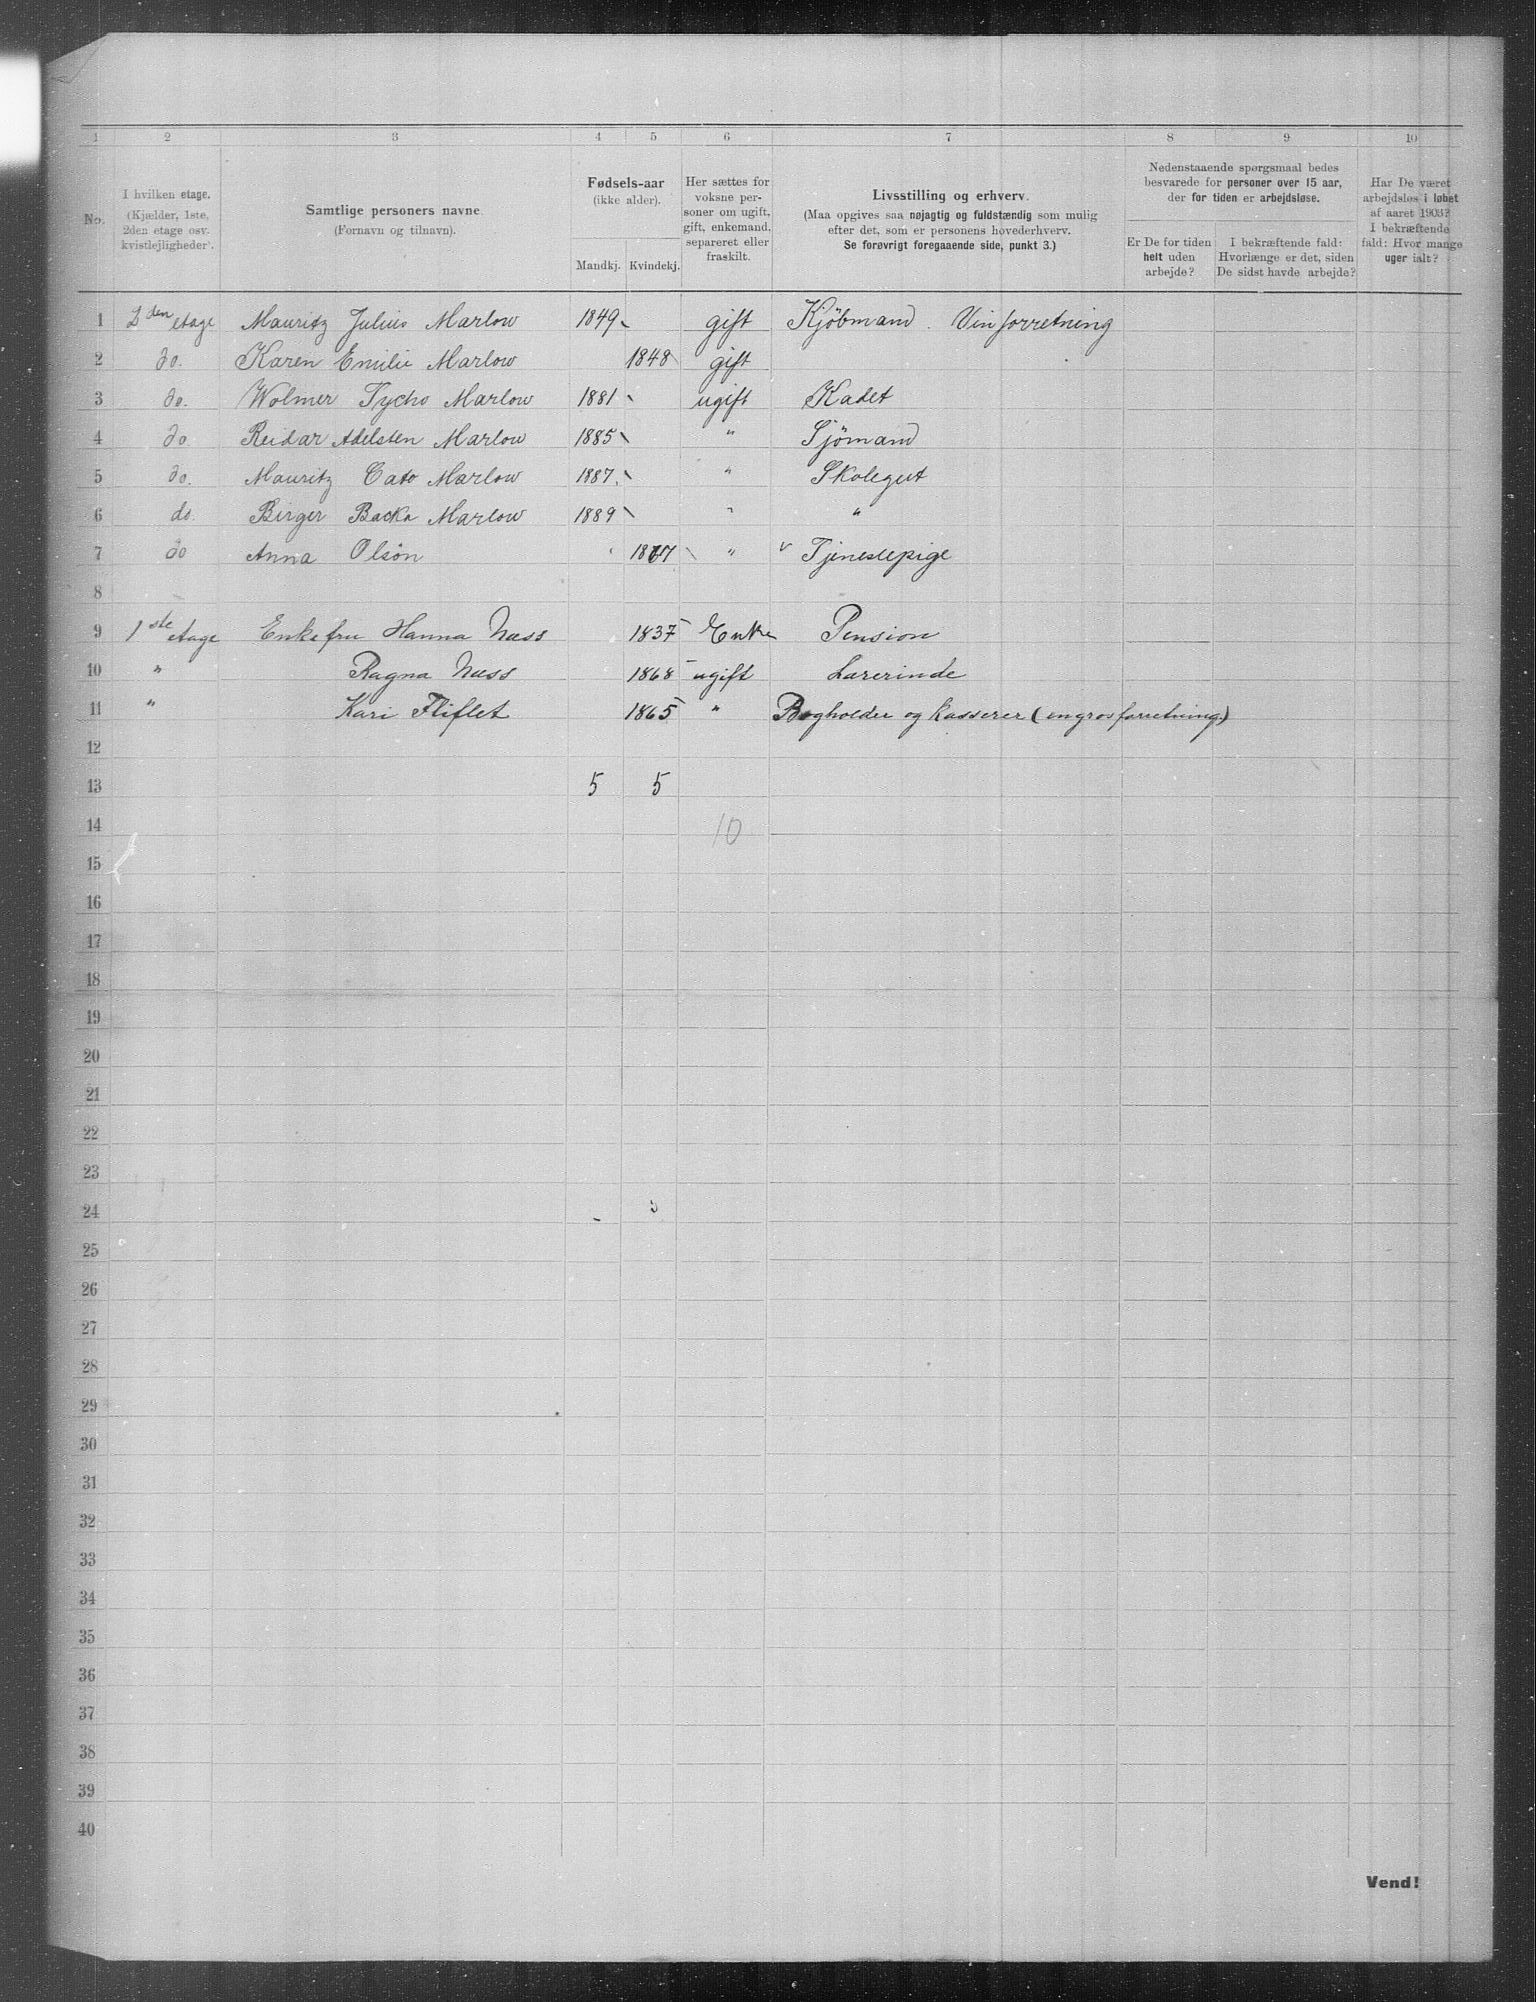 1 2 3 4 5 6 7 8 9 10
No. I hvilken etage. (Kjælder, 1ste, 2den etage osv. kvistlejligheder). Samtlige personers navne. (Fornavn og tilnavn). Fødsels-aar (ikke alder). Mandkj. Kvindekj. Her sættes for voksne personer om ugift, gift, enkemand, separeret eller fraskilt. Livsstilling og erhverv. (Maa opgives saa nøjagtig og fuldstændig som mulig efter det, som er personens hovederhverv. Se forøvrigt foregaaende side, punkt 3.) Nedenstaaende spørgsmaal bedes besvarede for personer over 15 aar, der for tiden er arbejdsløse. Er De for tiden helt uden arbejde? I bekræftende fald: Hvorlænge er det, siden De sidst havde arbejde? Har De været arbejdsløs i løbet af aaret 1903? I bekræftende fald: Hvor mange uger ialt?
1 2den etage Mauritz Julius Marlow 1849 gift Kjöbmand. Vinforretning
2 do. Karen Emilie Marlow 1848 gift
3 do. Wolmer Tycho Marlow 1881 ugift Kadet
4 do. Reidar Adelsten Marlow 1885 " Sjömand
5 do. Mauritz Cato Marlow 1887 " Skolegut
6 do. Birger Backa Marlow 1889 " "
7 do Anna Olsön " Tjenestepige
8
9 1ste etage Enkefru Hanna Næss 1837 Enke Pension
10 " Ragna Næss 1868 ugift Lærerinde
11 " Kari Fliflet 1865 " Bogholder og kasserer (engrosforretning)
12
13 5 5
14 10
15
16
17
18
19
20
21
22
23
24
25
26
27
28
29
30
31
32
33
34
35
36
37
38
39
40
Vend!